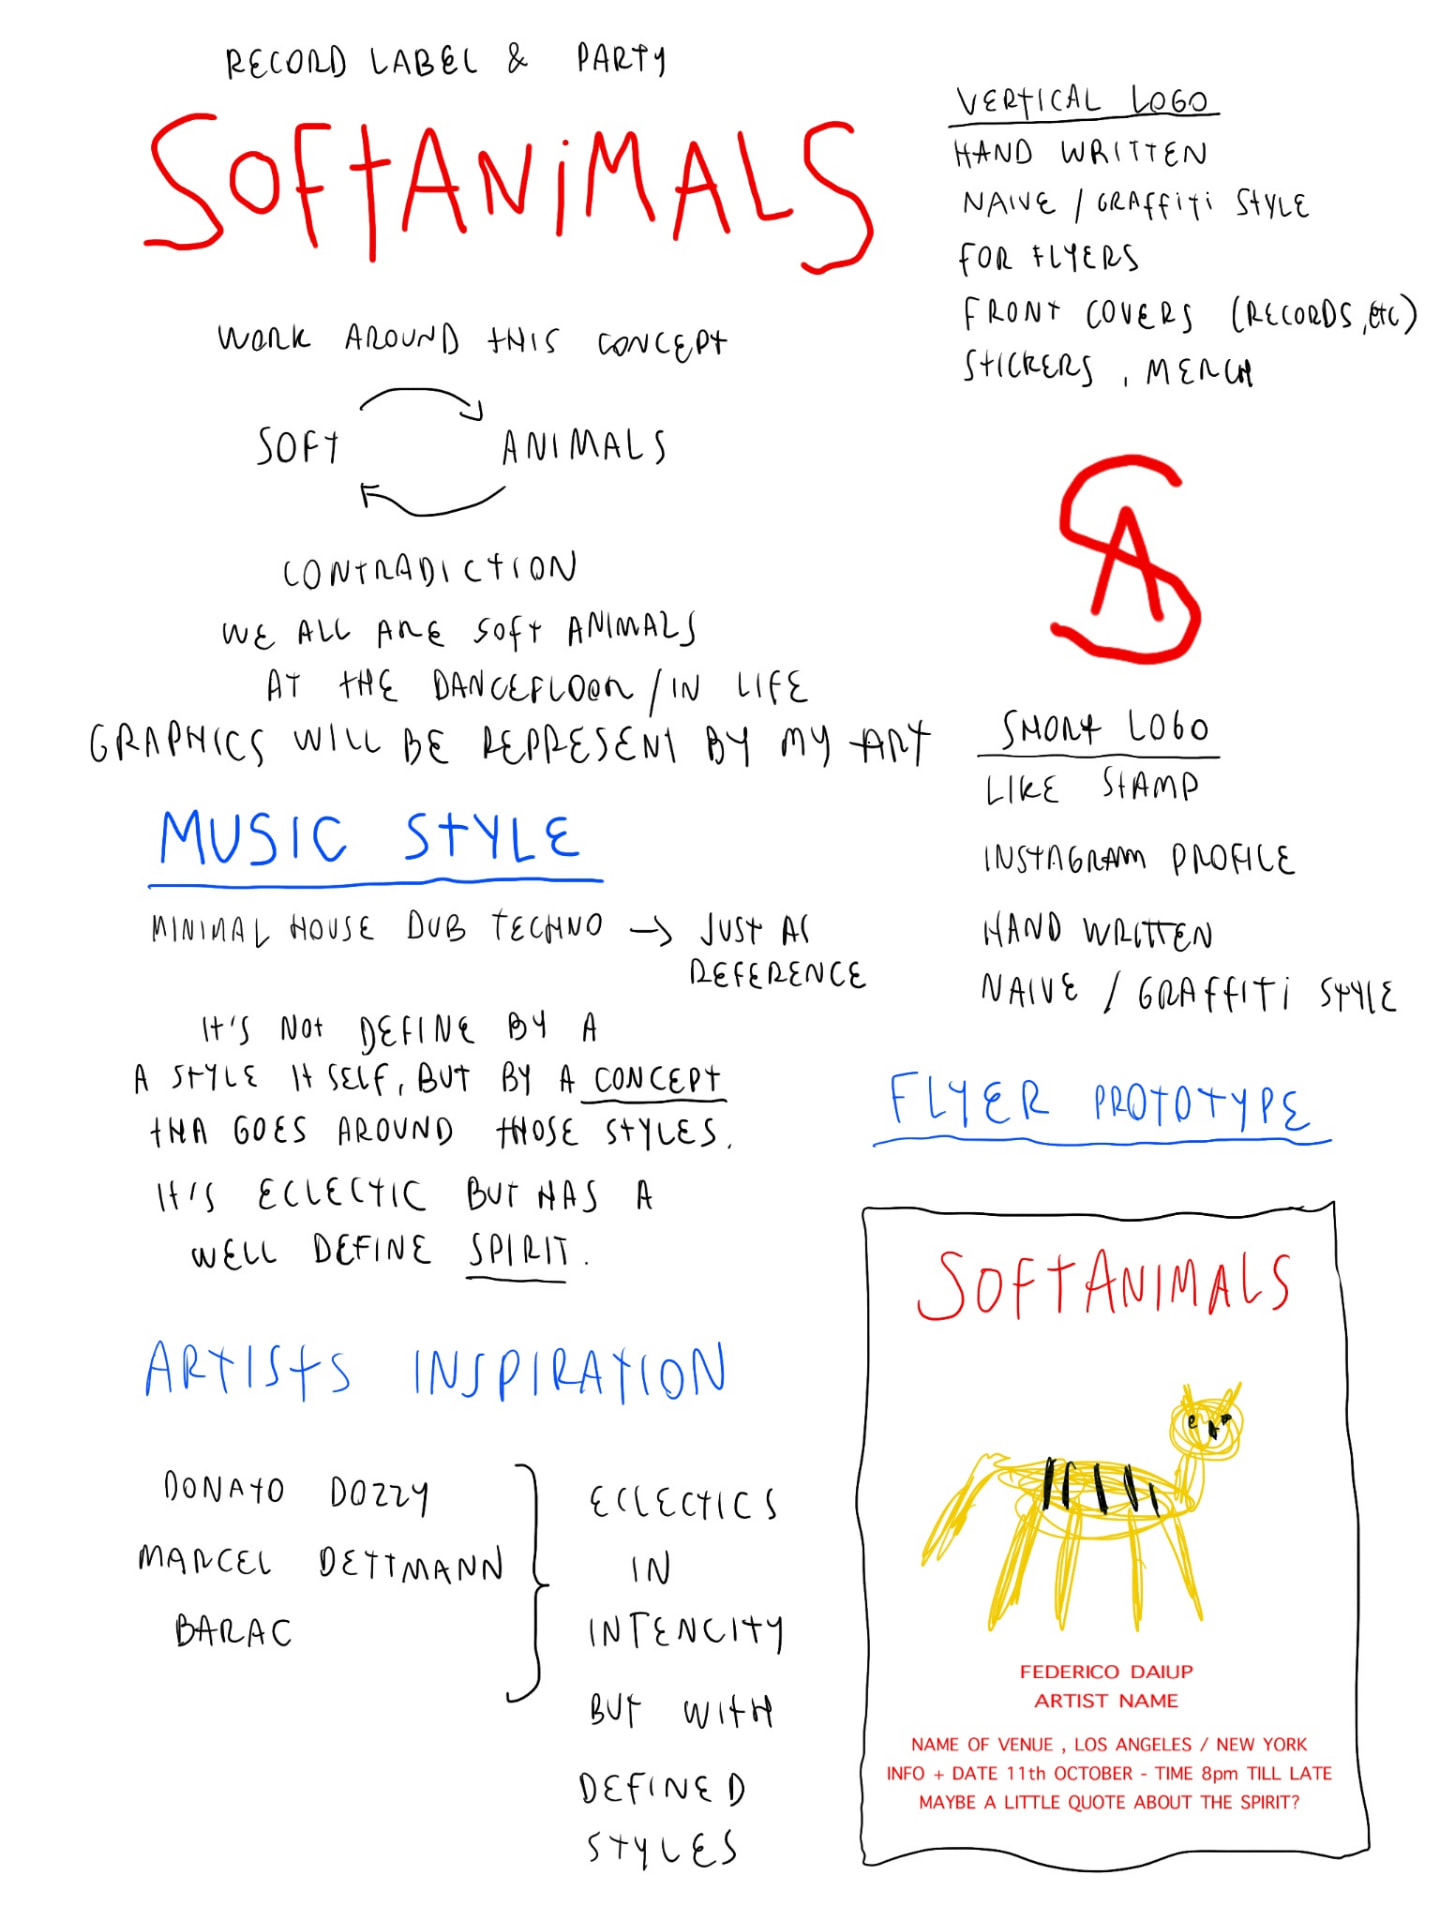 RECORD LABEL & PARTY
SOFTANiMALS
WORK AROUND THIS CONCEPT
SOFT ANIMALS
CONTRADICTION
WE ALL ARE SOFT ANIMALS
AT THE DANCEFLOOR / IN LIFE
GRAPHICS WILL BE REPRESENT BY MY ART
MUSIC STYLE
MINIMAL HOUSE DUB TECHNO → JUST AS
REFERENCE
IT'S NOT DEFINE BY A
A STYLE ITSELF, BUT BY A CONCEPT
THA GOES AROUND THOSE STYLES.
IT'S ECLECTIC BUT HAS A
WELL DEFINE SPIRIT.
ARTISTS INSPIRATION
DONATO DOZZY
MARCEL DETTMANN
BARAC
ECLECTICS
IN
INTENCITY
BUT WITH
DEFINED
STYLES
VERTICAL LOGO
HAND WRITTEN
NAIVE / GRAFFITI STYLE
FOR FLYERS
FRONT COVERS (RECORDS, etc)
STICKERS, MERCH
SA
SHORT LOGO
LIKE STAMP
INSTAGRAM PROFILE
HAND WRITTEN
NAIVE / GRAFFITI STYLE
FLYER PROTOTYPE
SOFTANIMALS
FEDERICO DAIUP
ARTIST NAME
NAME OF VENUE , LOS ANGELES / NEW YORK
INFO + DATE 11th OCTOBER - TIME 8pm TILL LATE
MAYBE A LITTLE QUOTE ABOUT THE SPIRIT?